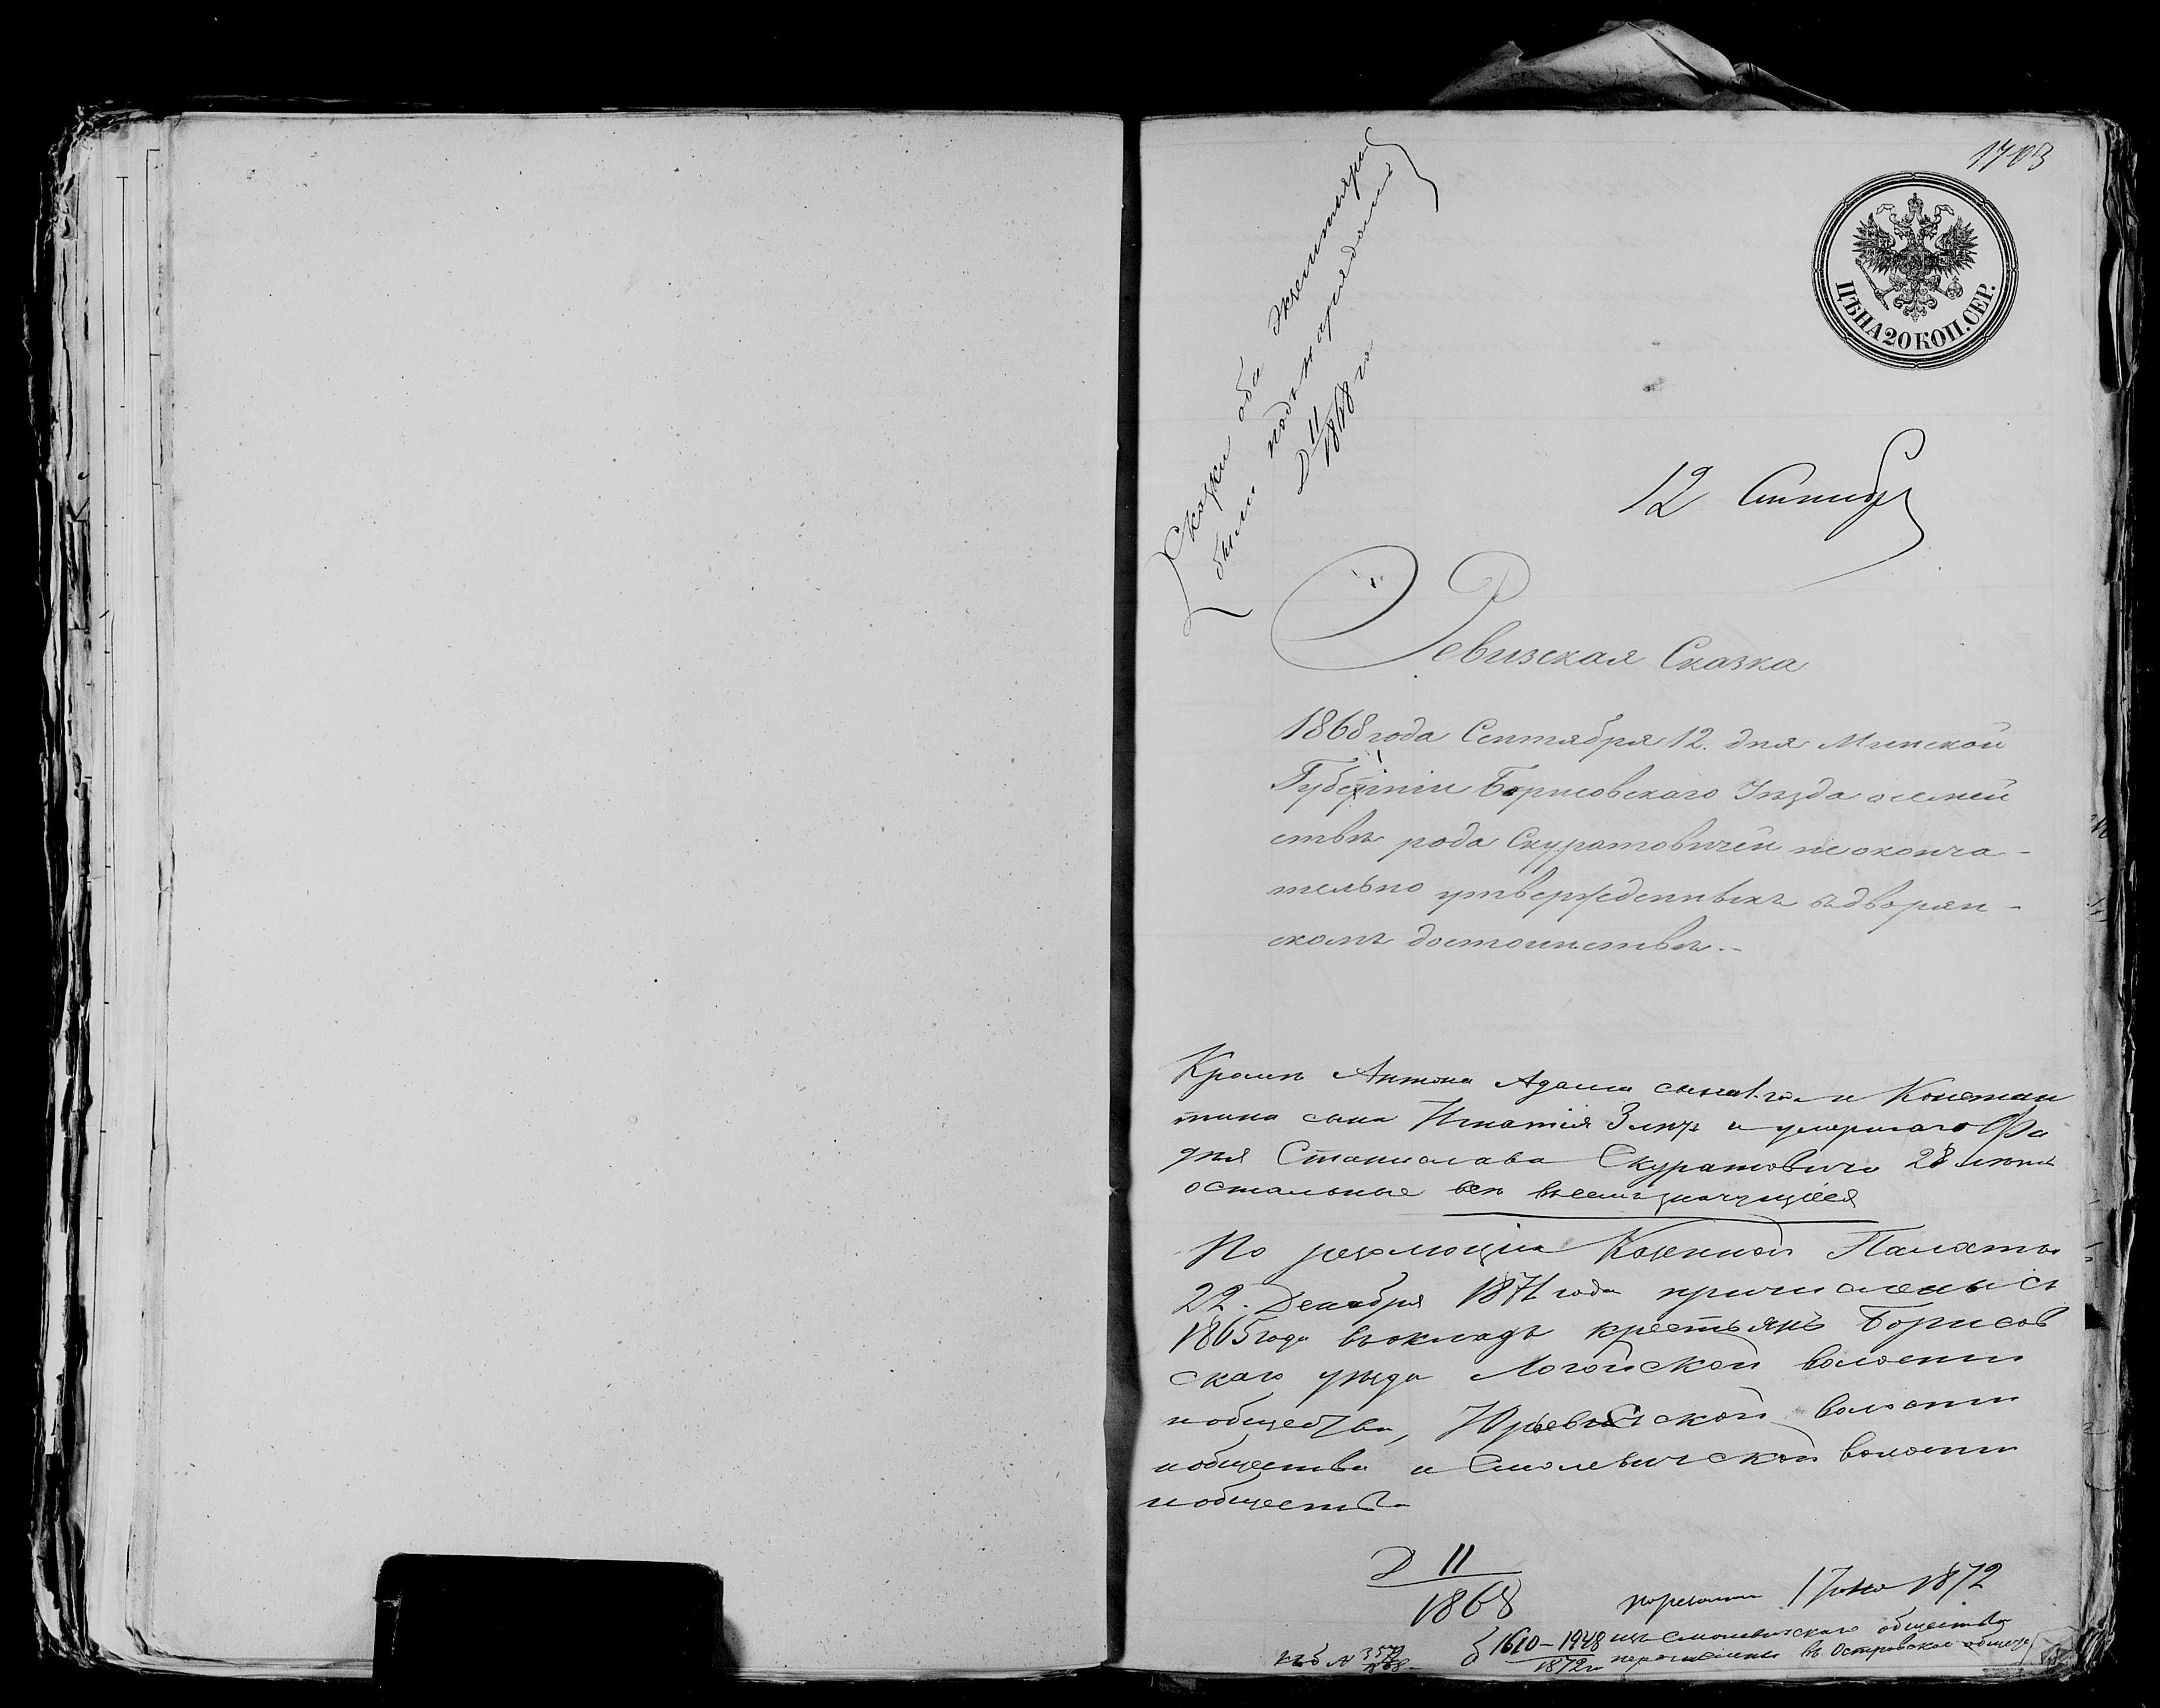 1703
ЦѢНА 20 КОП. СЕР.
Сказки оба экземпляра
были поданы
D 11
1868 го
12 Сентяб
Ревизская Сказка
1868 года Сентября 12. дня Минской
Губерніи Борисовскаго Уѣзда о семей
ствѣ рода Скуратовичей не оконча-
тельно утвержденныхъ въ дворян-
скомъ достоинствѣ.-
Кромѣ Антона Адама сына и Констан
тина сына Игнатія и умершаго Фа
дѣя Станислава Скуратовича 28
остальные всѣ
По резолюціи Казенной Палаты
22. Декабря 1871 года причислены съ
1865 года въ окладъ крестьянъ Борисов
скаго уѣзда Логойской волости
и общества, Юрьевской волости
и общества и Смолевичской волости
и общества
D 11
1868
по резолюціи 17 1872
изъ Смолевичскаго общества
перечислены въ Островское общес
1610-1948
1872 г